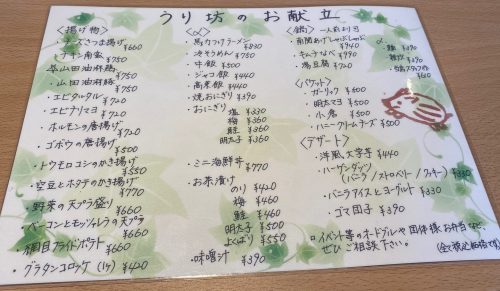 うり坊のお献立
<揚げ物>
・チーズさつま揚げ ¥660
・チキン南蛮 ¥750
・葱山田油麻豚 ¥750
・山田油麻豚 ¥720
・エビタルタル ¥720
・エビチリマヨ ¥720
・ホルモンの唐揚げ ¥720
・ゴボウの唐揚げ ¥550
・トウモロコシのかき揚げ ¥550
・空豆とホタテのかき揚げ ¥770
・野菜の天プラ盛り ¥660
・ベーコンとモッツァレラの天プラ ¥660
・網目フライドポテト ¥660
・グラタンコロッケ(1ケ) ¥420
<〆>
・馬力つけラーメン ¥830
・冷そうめん ¥750
・牛飯 ¥500
・ジャコ飯 ¥440
・高菜飯 ¥440
・焼おにぎり ¥390
・おにぎり
塩 ¥330
梅 ¥360
鮭 ¥360
明太子 ¥360
・ミニ海鮮丼 ¥770
・お茶漬け
のり ¥420
梅 ¥460
鮭 ¥460
明太子 ¥500
よくばり ¥550
・味噌汁 ¥390
<鍋> 一人前より
・南関あげしゃぶしゃぶ ¥940
・キムチなべ ¥990
・湯豆腐 ¥720
¥390
¥390
¥550
<バケット>
・ガーリック ¥600
・明太マヨ ¥500
・小倉 ¥500
・ハニークリームチーズ ¥500
<デザート>
・洋風芋 ¥440
・ハーゲンダッツ
(バニラ/ストロベリー/クッキー) ¥330
・バニラアイスとヨーグルト ¥390
・ゴマ団子 ¥390
ロイベント等のオードブルや団体様お弁当など、
ぜひご相談下さい。
(全て税込価格です)